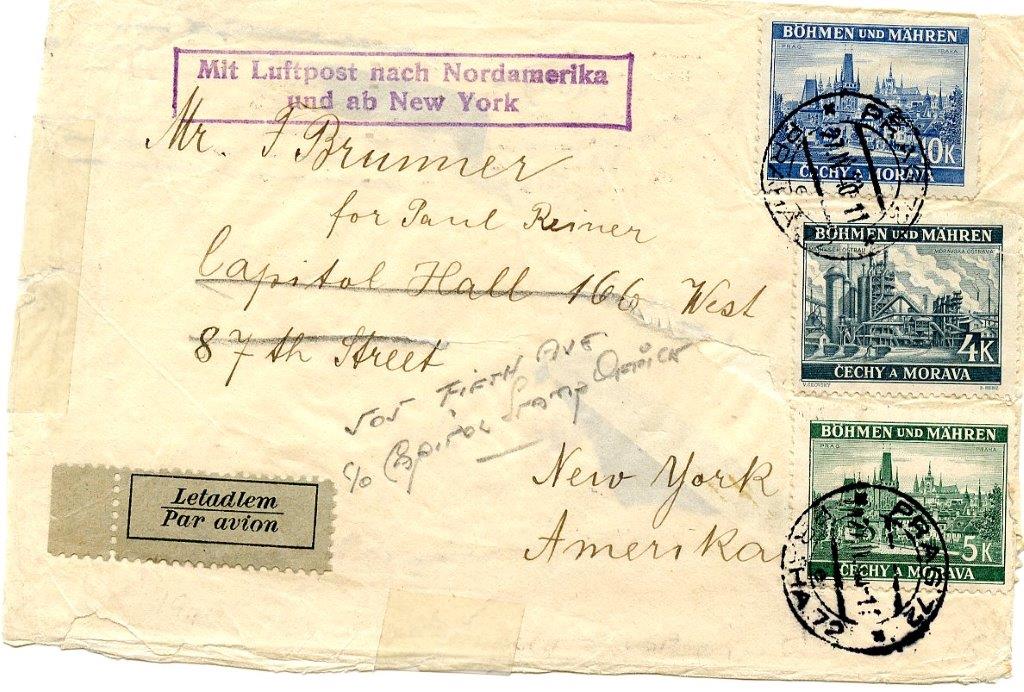 Mit Luftpost nach Nordamerika
und ab New York
Mr. F Brunner
for Paul Reiner
Capitol Hall 166 West
87th Street
FIFTH AVE
c/o Capitol Stamp
New York
Amerika
Letadlem
Par avion
BÖHMEN UND MÄHREN
PRAG PRAHA
10K
ČECHY A MORAVA
BÖHMEN UND MÄHREN
MORAVSKÁ OSTRAVA
4K
ČECHY A MORAVA
BÖHMEN UND MÄHREN
PRAG PRAHA
5K
ČECHY A MORAVA
PRAG
PRAHA
PRAG 72
PRAHA 72